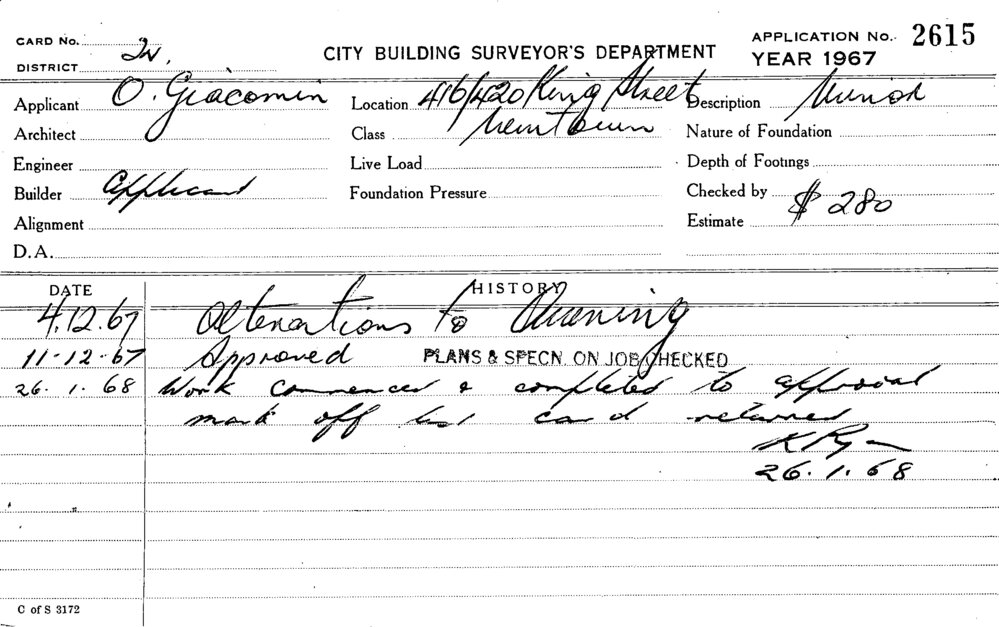 CARD No. 2w.
CITY BUILDING SURVEYOR'S DEPARTMENT
APPLICATION No. 2615
DISTRICT
YEAR 1967
Applicant O. Giacomin
Location 416/420 King Street
Description Minor
Architect
Class Newtown
Nature of Foundation
Engineer
Live Load
Depth of Footings
Builder Applicant
Foundation Pressure
Checked by
Alignment
Estimate $ 280
D.A.
DATE HISTORY
4.12.67 Alterations to Awning
11-12-67 Approved PLANS & SPECN. ON JOB CHECKED
26.1.68 Work commenced & completed to approval
mark off list card returned
K Ryan
26.1.68
C of S 3172